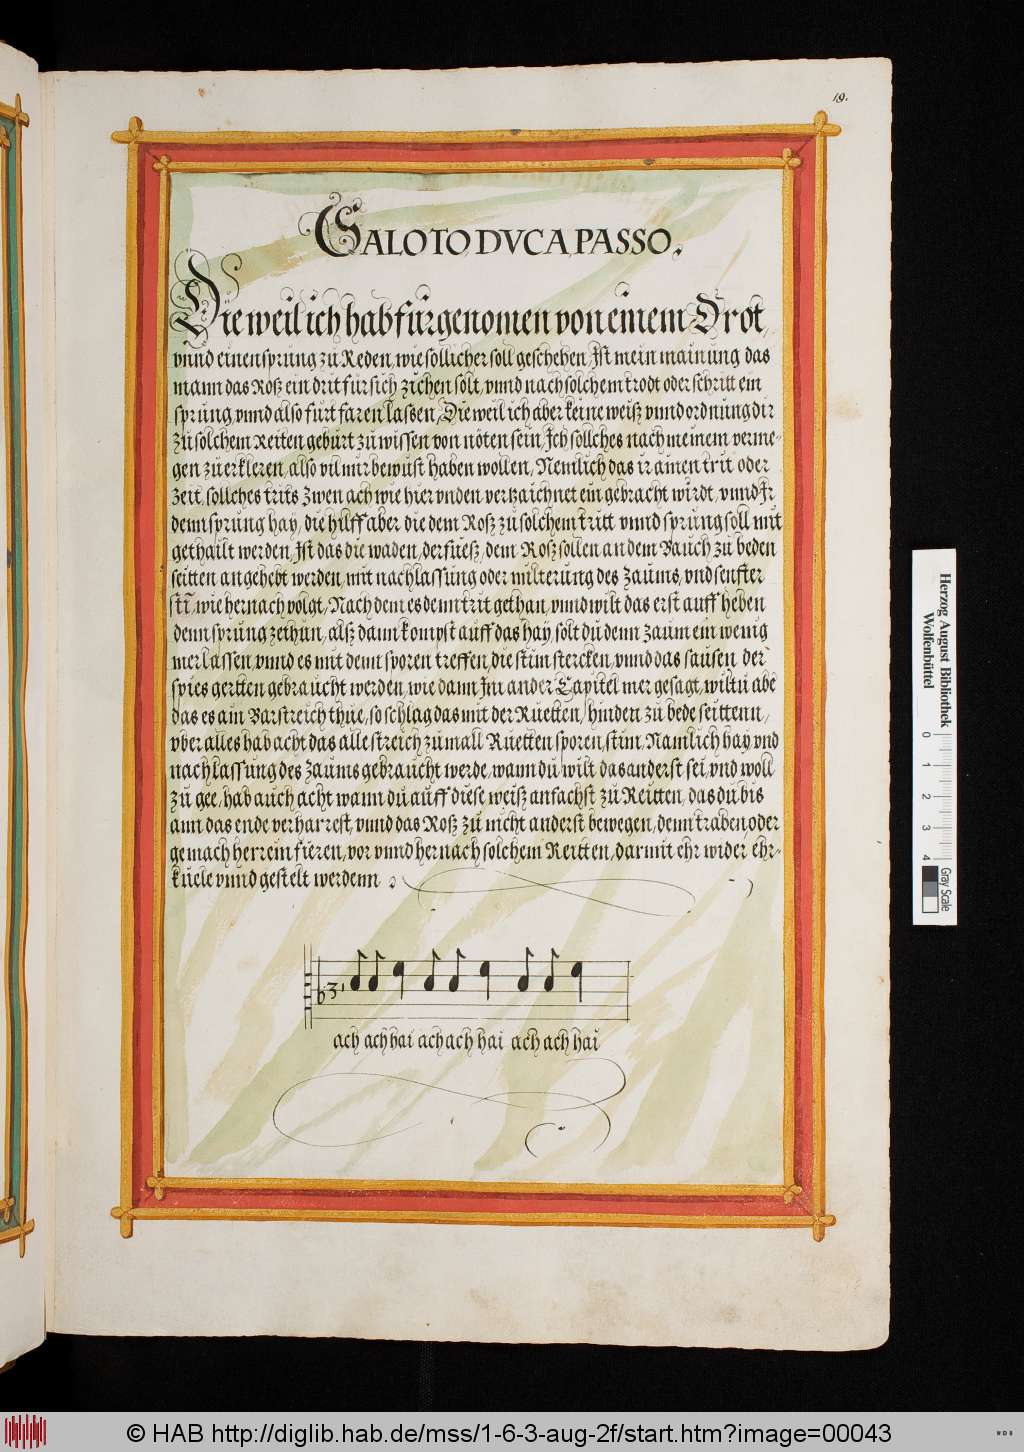 19.
GALOTO, DVCA, PASSO.
Die weil ich hab fur genomen von einem Drot,
vnnd einen sprung zu Reden, wie sollicher soll geschehen, Ist mein mainung das
mann das Roß ein drit fur sich zichen solt, vnnd nach solchem trodt oder schritt ein
sprung, vnnd also furt faren laßen, Die weil ich aber keine weiß vnnd ordnung dir
zu solchem Reiten geburt zu wissen von nöten sein, Ich sollches nach meinem verme-
gen zu erkleren, also vil mir bewust haben wollen, Nemlich das ir
zeit, sollches trits zwen ach wie hier vnden vertzaichnet ein gebracht wirdt, vnnd Ir
denn sprung hay, die hilff aber die dem Roß zu solchem tritt vnnd sprung soll mit
gethailt werden, Ist das die waden, der füeß, dem Roß sollen an dem Bauch zu beden
seitten angehebt werden, mit nachlassung oder milterung des Zaums, vnd senfter
stī, wie hernach volgt, Nach dem es denn trit gethan, vnnd wilt das erst auff heben
denn sprung zethun, alß dann kompst auff das hay, solt du denn Zaum ein wenig
mer lassen, vnnd es mit denn sporen treffen, die stim stercken, vnnd das sausen der
spies gertten gebraucht werden, wie dann Im ander Capitel mer gesagt, wiltu abe
das es ain Barstreich thue, so schlag das mit der Ruetten, hinden zu bede seittenn,
vber alles hab acht das alle streich zumall Ruetten sporen, stim, Namlich hay vnd
nachlassung des Zaums gebraucht werde, wann du wilt das anderst sei, vnd woll
zu gee, hab auch acht wann du auff diese weiß anfachst zu Reutten, das du bis
ann das ende verharrest, vnnd das Roß zu nicht anderst bewegen, denn traben, oder
gemach herrein fieren, vor vnnd hernach solchem Reitten, darmit ehr wider ehr-
kuele vnnd gestelt werdenn
3
ach ach hai ach ach hai ach ach hai
Herzog August Bibliothek
Wolfenbüttel
0 1 2 3 4
Gray Scale
© HAB http://diglib.hab.de/mss/1-6-3-aug-2f/start.htm?image=00043
WDB